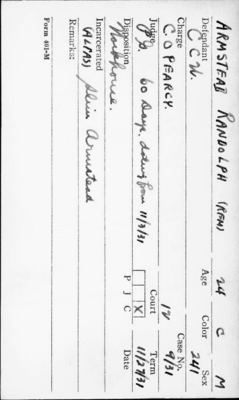 ARMSTEAD RANDOLPH (REM) 24 C M
Defendant Age Color Sex
C C W. 241
Charge Case No.
C. O PEARCY. 12 9/31
Judge Court Term
60 Days. dating from 11/3/31 X 11/27/31
Disposition P J C Date
Workhouse.
Incarcerated
(ALIAS) Alvin Armstead
Remarks:
Form 401-M